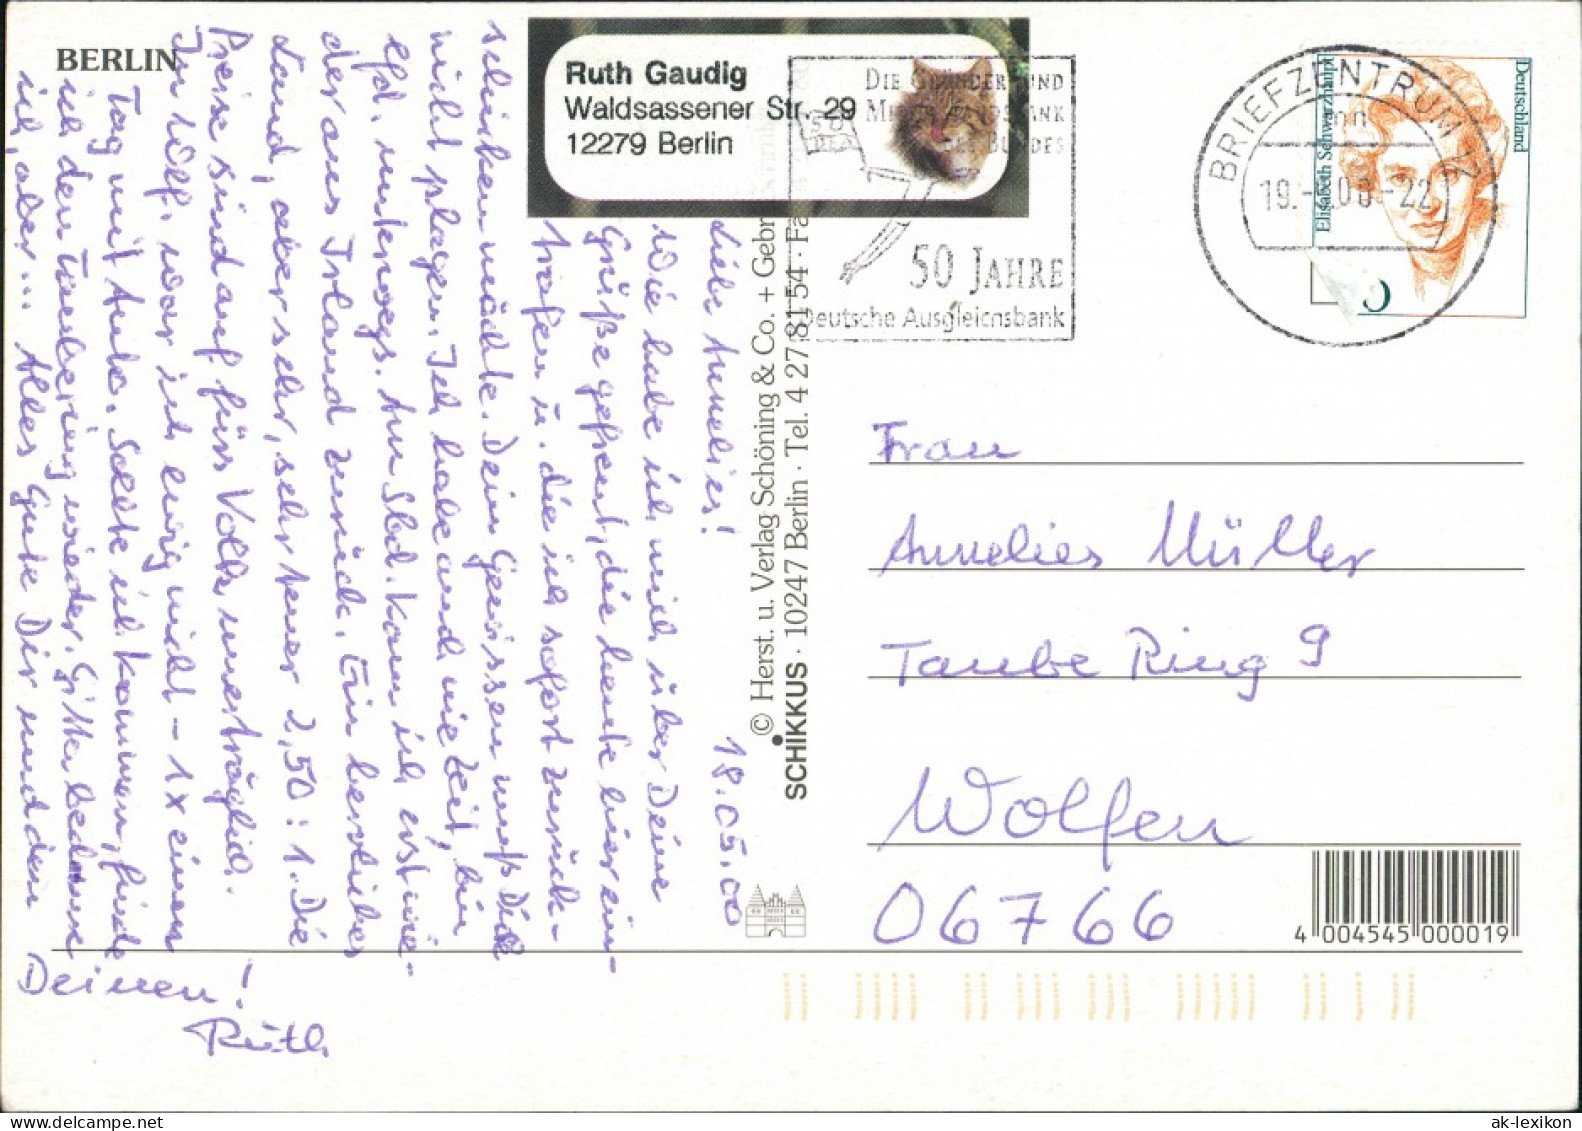 BERLIN
Ruth Gaudig
Waldsassener Str. 29
12279 Berlin
DIE GRÜNDER UND
BUNDES
50 JAHRE
Deutsche Ausgleichsbank
BRIEFZENTRUM 12
19.-5.00-22
Deutschland
Elisabeth Schwarzhaupt
18.05.00
Liebe Annelies!
Wie habe ich mich über Deine
Grüße gefreut, die heute hier ein-
trafen u. die ich sofort zurück-
schicken möchte. Dein Gewissen muß Dich
nicht plagen. Ich habe auch nie Zeit, bin
efd. unterwegs. Am Sbd. kam ich erst wie-
der aus Irland zurück. Ein herrliches
Land, aber sehr, sehr teuer 2,50 : 1. Die
Preise sind auf fürs Volk unerträglich.
In Wolf. war ich ewig nicht - 1x einen
Tag mit Auto. Sollte ich kommen, finde
ich den Taubering wieder. Gitta bekam
ich, aber... Alles Gute Dir und den
Deinen!
Ruth
© Herst. u. Verlag Schöning & Co. + Gebr
SCHIKKUS · 10247 Berlin · Tel. 4 27 81 54 · Fa
Frau
Annelies Müller
Taube Ring 9
Wolfen
06766
4 004545 000019
ak-lexikon.com